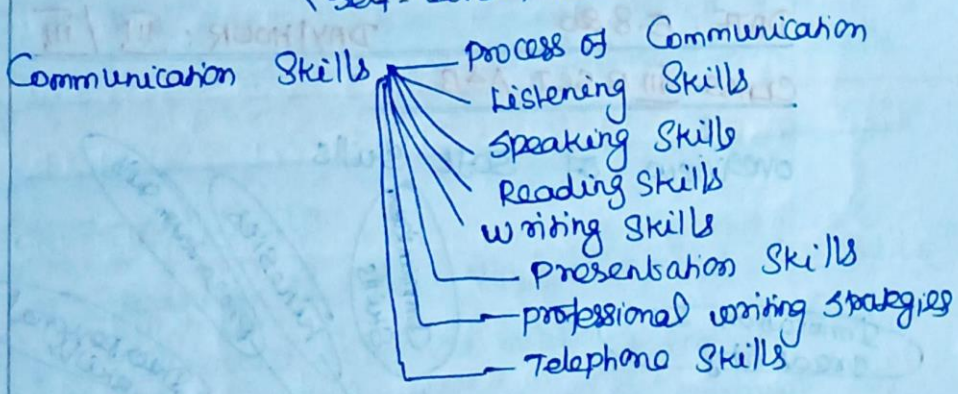 Communication Skills
Process of Communication
Listening Skills
Speaking Skills
Reading Skills
Writing Skills
Presentation Skills
professional writing strategies
Telephone Skills